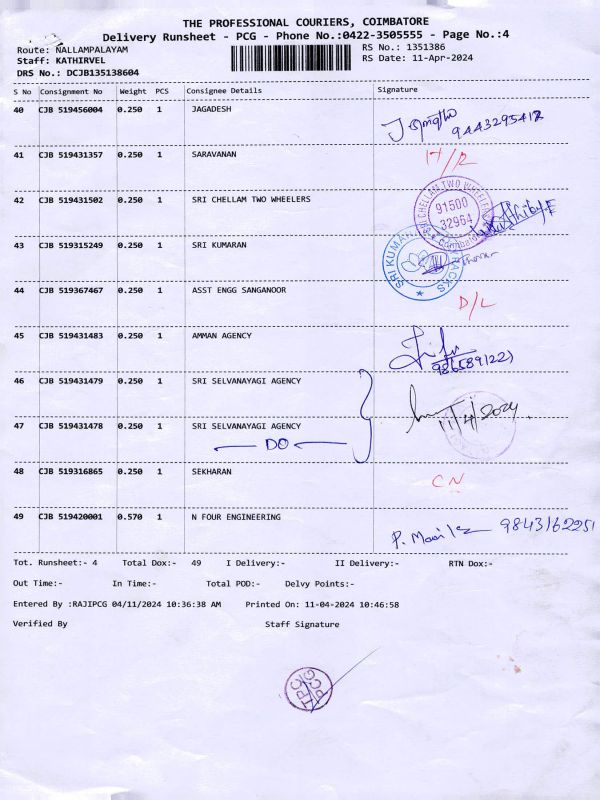 THE PROFESSIONAL COURIERS, COIMBATORE
Delivery Runsheet - PCG - Phone No.:0422-3505555 - Page No.:4
Route: NALLAMPALAYAM
RS No.: 1351386
Staff: KATHIRVEL
RS Date: 11-Apr-2024
DRS No.: DCJB135138604
S No Consignment No Weight PCS Consignee Details Signature
40 CJB 519456004 0.250 1 JAGADESH
9443295412
41 CJB 519431357 0.250 1 SARAVANAN
42 CJB 519431502 0.250 1 SRI CHELLAM TWO WHEELERS
SRI CHELLAM TWO WHEELERS
91500
32964
43 CJB 519315249 0.250 1 SRI KUMARAN
SRI KUMARAN
44 CJB 519367467 0.250 1 ASST ENGG SANGANOOR
D/L
45 CJB 519431483 0.250 1 AMMAN AGENCY
46 CJB 519431479 0.250 1 SRI SELVANAYAGI AGENCY
11/4/2024
47 CJB 519431478 0.250 1 SRI SELVANAYAGI AGENCY
DO
48 CJB 519316865 0.250 1 SEKHARAN
CN
49 CJB 519420001 0.570 1 N FOUR ENGINEERING
9843162251
Tot. Runsheet:- 4 Total Dox:- 49 I Delivery:- II Delivery:- RTN Dox:-
Out Time:- In Time:- Total POD:- Delvy Points:-
Entered By :RAJIPCG 04/11/2024 10:36:38 AM Printed On: 11-04-2024 10:46:58
Verified By Staff Signature
TPC
PCG